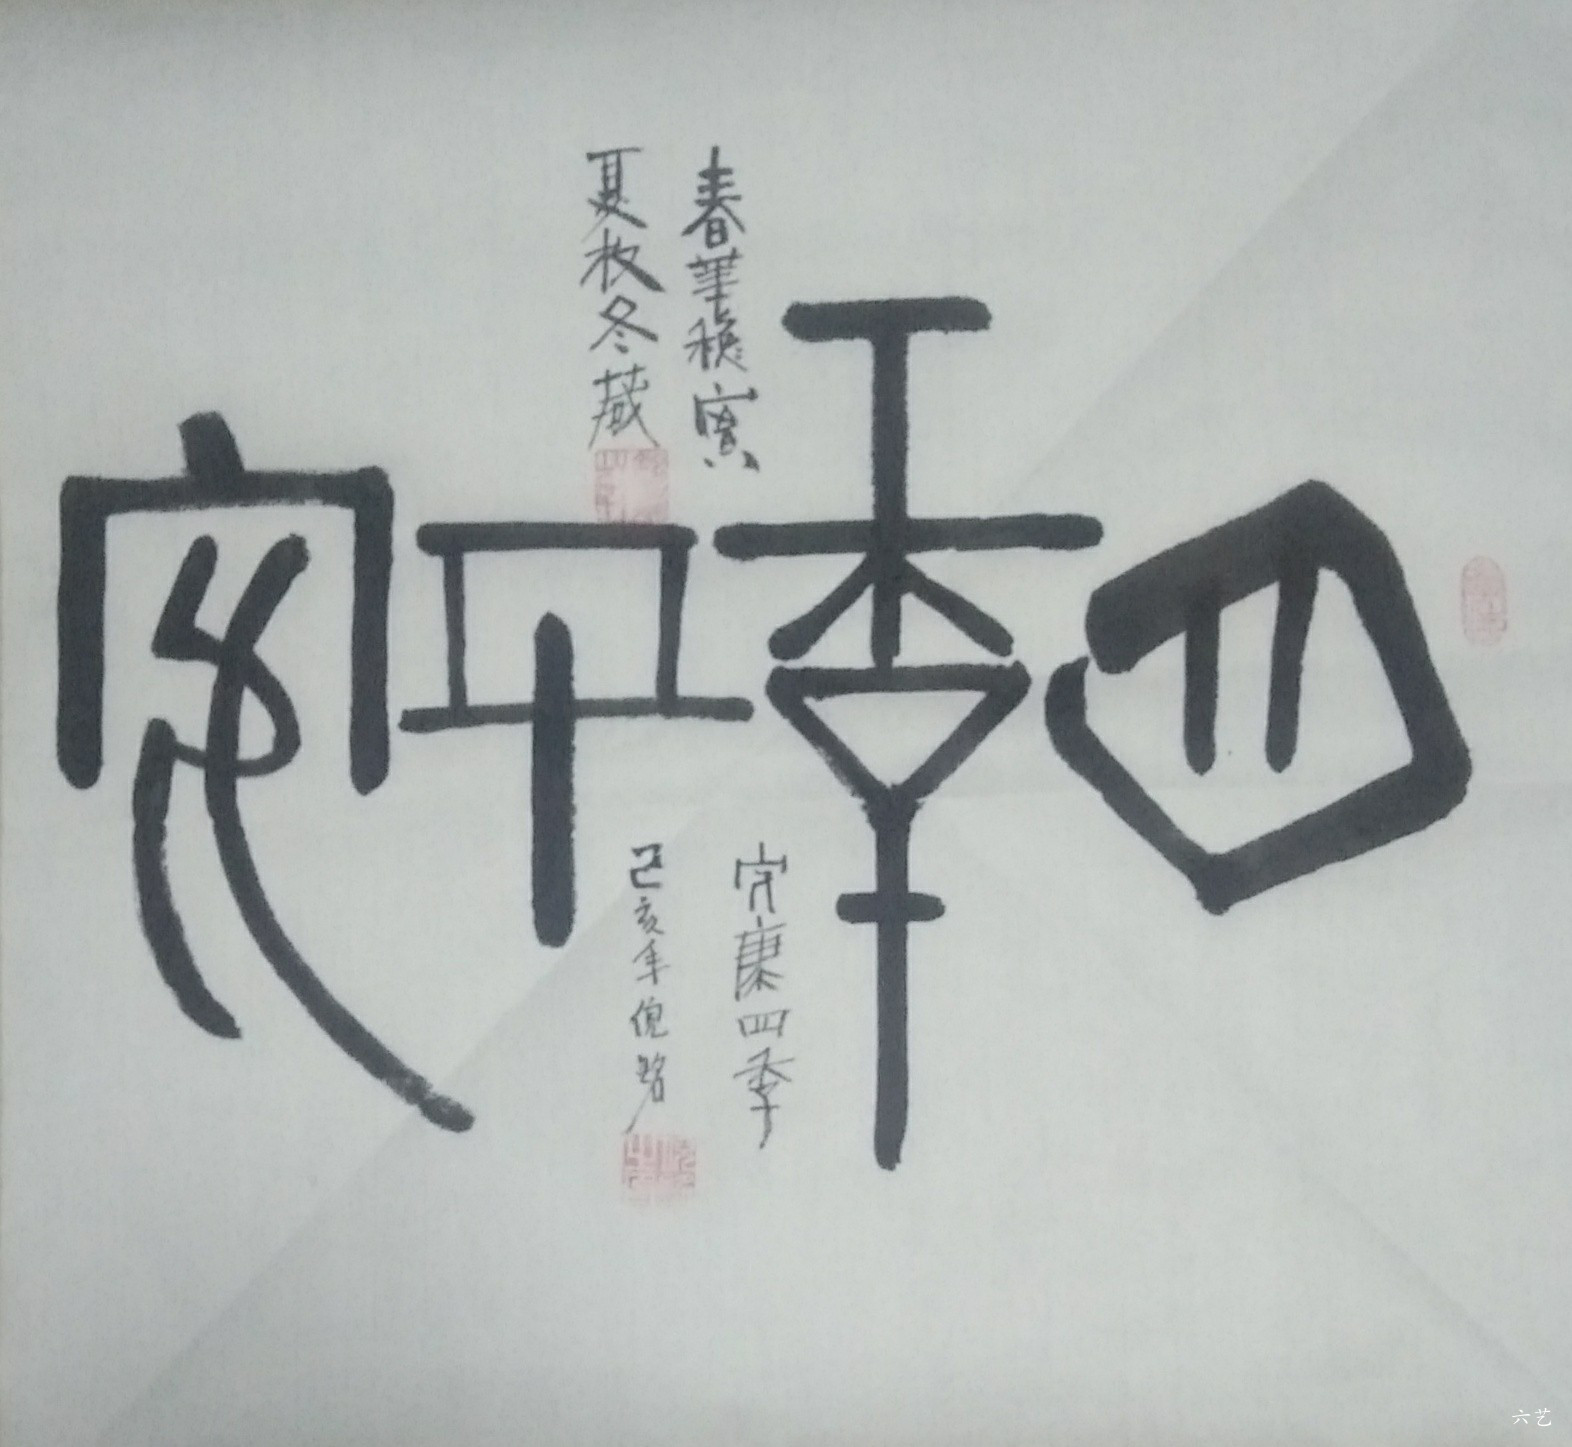 四季平安
春華穐實
夏枚冬藏
安康四季
己亥年倪
六艺